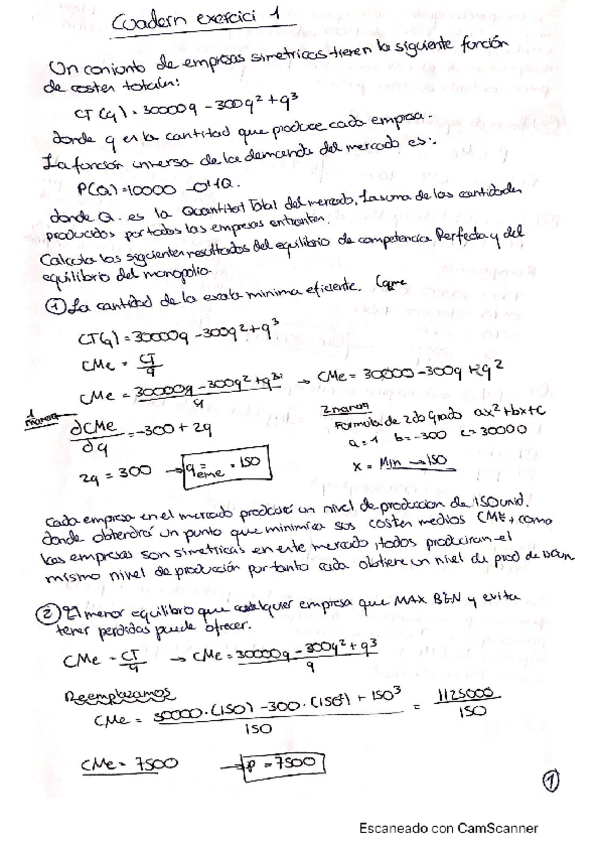 Cuadern exercici 1
Un conjunto de empresas simetricas tienen la siguiente función
de costen totales:
CT(q) = 30000q - 300q² + q³
donde q es la cantidad que produce cada empresa.
La función inversa de la demanda del mercado es:
P(Q) = 10000 - 0'1Q.
donde Q. es la Quantitat Total del mercado, la suma de las cantidades
producidas por todas las empresas entrantes.
Calcula los siguientes resultados del equilibrio de competencia Perfecta y del
equilibrio del monopolio.
① La cantidad de la escala minima eficiente.
CT(q) = 30000q - 300q² + q³
CMe = CT/q
CMe = 30000q - 300q² + q³ / q → CMe = 30000 - 300q + q²
1 manera
∂CMe/∂q = -300 + 2q
2q = 300 → q eme = 150
2 manera
Formula de 2do Grado ax² + bx + c
a = 1 b = -300 c = 30000
x = Min → 150
Cada empresa en el mercado producirá un nivel de produccion de 150 unid.
donde obtendrá un punto que minimiza sus costen medios CMe, como
las empresas son simetricas en este mercado, todos produciran el
mismo nivel de producción por tanto cada obtiene un nivel de prod de
② El menor equilibro que cualquier empresa que MAX BEN y evita
tener perdidas puede ofrecer.
CMe = CT/q → CMe = 30000q - 300q² + q³ / q
Reemplazamos
CMe = 30000·(150) - 300·(150²) + 150³ / 150 = 1125000 / 150
CMe = 7500 → P = 7500
1
Escaneado con CamScanner